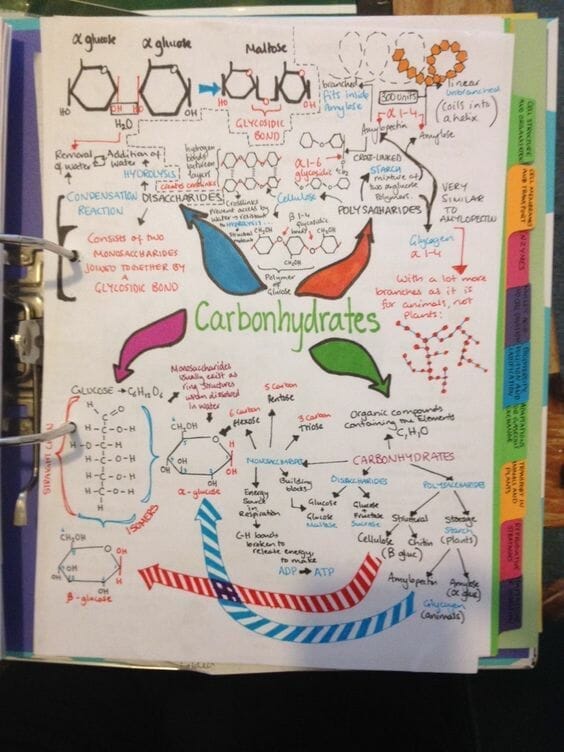 α glucose
α glucose
Maltose
HO
OH
HO
OH
H₂O
HO
OH
GLYCOSIDIC
BOND
branched
fits inside
Amylose
300 units
α 1-4
Amylopectin
Amylose
linear
Unbranched
(coils into
a helix)
Removal
of water
Addition of
water
HYDROLYSIS
hydrogen
bonds
between
layers
creates crosslinks
CONDENSATION
REACTION
DISACCHARIDES
Crosslinks
Prevent access by
Cellulose
β 1-4
glycosidic
bonds
CH₂OH
CH₂OH
CH₂OH
Polymer
of
Glucose
α1-6
glycosidic
CROSS-LINKED
STARCH
mixture of
two α-glucose
Polymers.
POLYSACHARIDES
VERY
SIMILAR
TO
AMYLOPECTIN
Glycogen
α 1-4
With a lot more
branches as it is
for animals, not
plants:
CONSISTS OF TWO
MONOSACCHARIDES
JOINED TOGETHER BY
A GLYCOSIDIC BOND
Carbonhydrates
GLUCOSE → C₆H₁₂O₆
Monosaccharides
usually exist as
ring structures
when dissolved
in water
CH₂OH
α-glucose
ISOMERS
CH₂OH
β-glucose
6 Carbon
Hexose
5 Carbon
Pentose
3 Carbon
Triose
MONOSACCHARIDES
Energy
Source
in
Respiration
C-H bonds
broken to
release energy
to make
ADP → ATP
Building
blocks
Organic compounds
containing the Elements
C, H, O
CARBONHYDRATES
DISACCHARIDES
Glucose
+
Glucose
Maltose
Glucose
Fructose
Sucrose
POLYSACCHARIDES
Structural
Cellulose
(B gluc)
Chitin
Storage
Starch
(Plants)
Amylopectin
Amylose
(α gluc)
Glycogen
(animals)
CELL STRUCTURE
AND ORGANISATION
CELL MEMBRANES
AND TRANSPORT
ENZYMES
TRANSPORT IN
ANIMALS AND
PLANTS